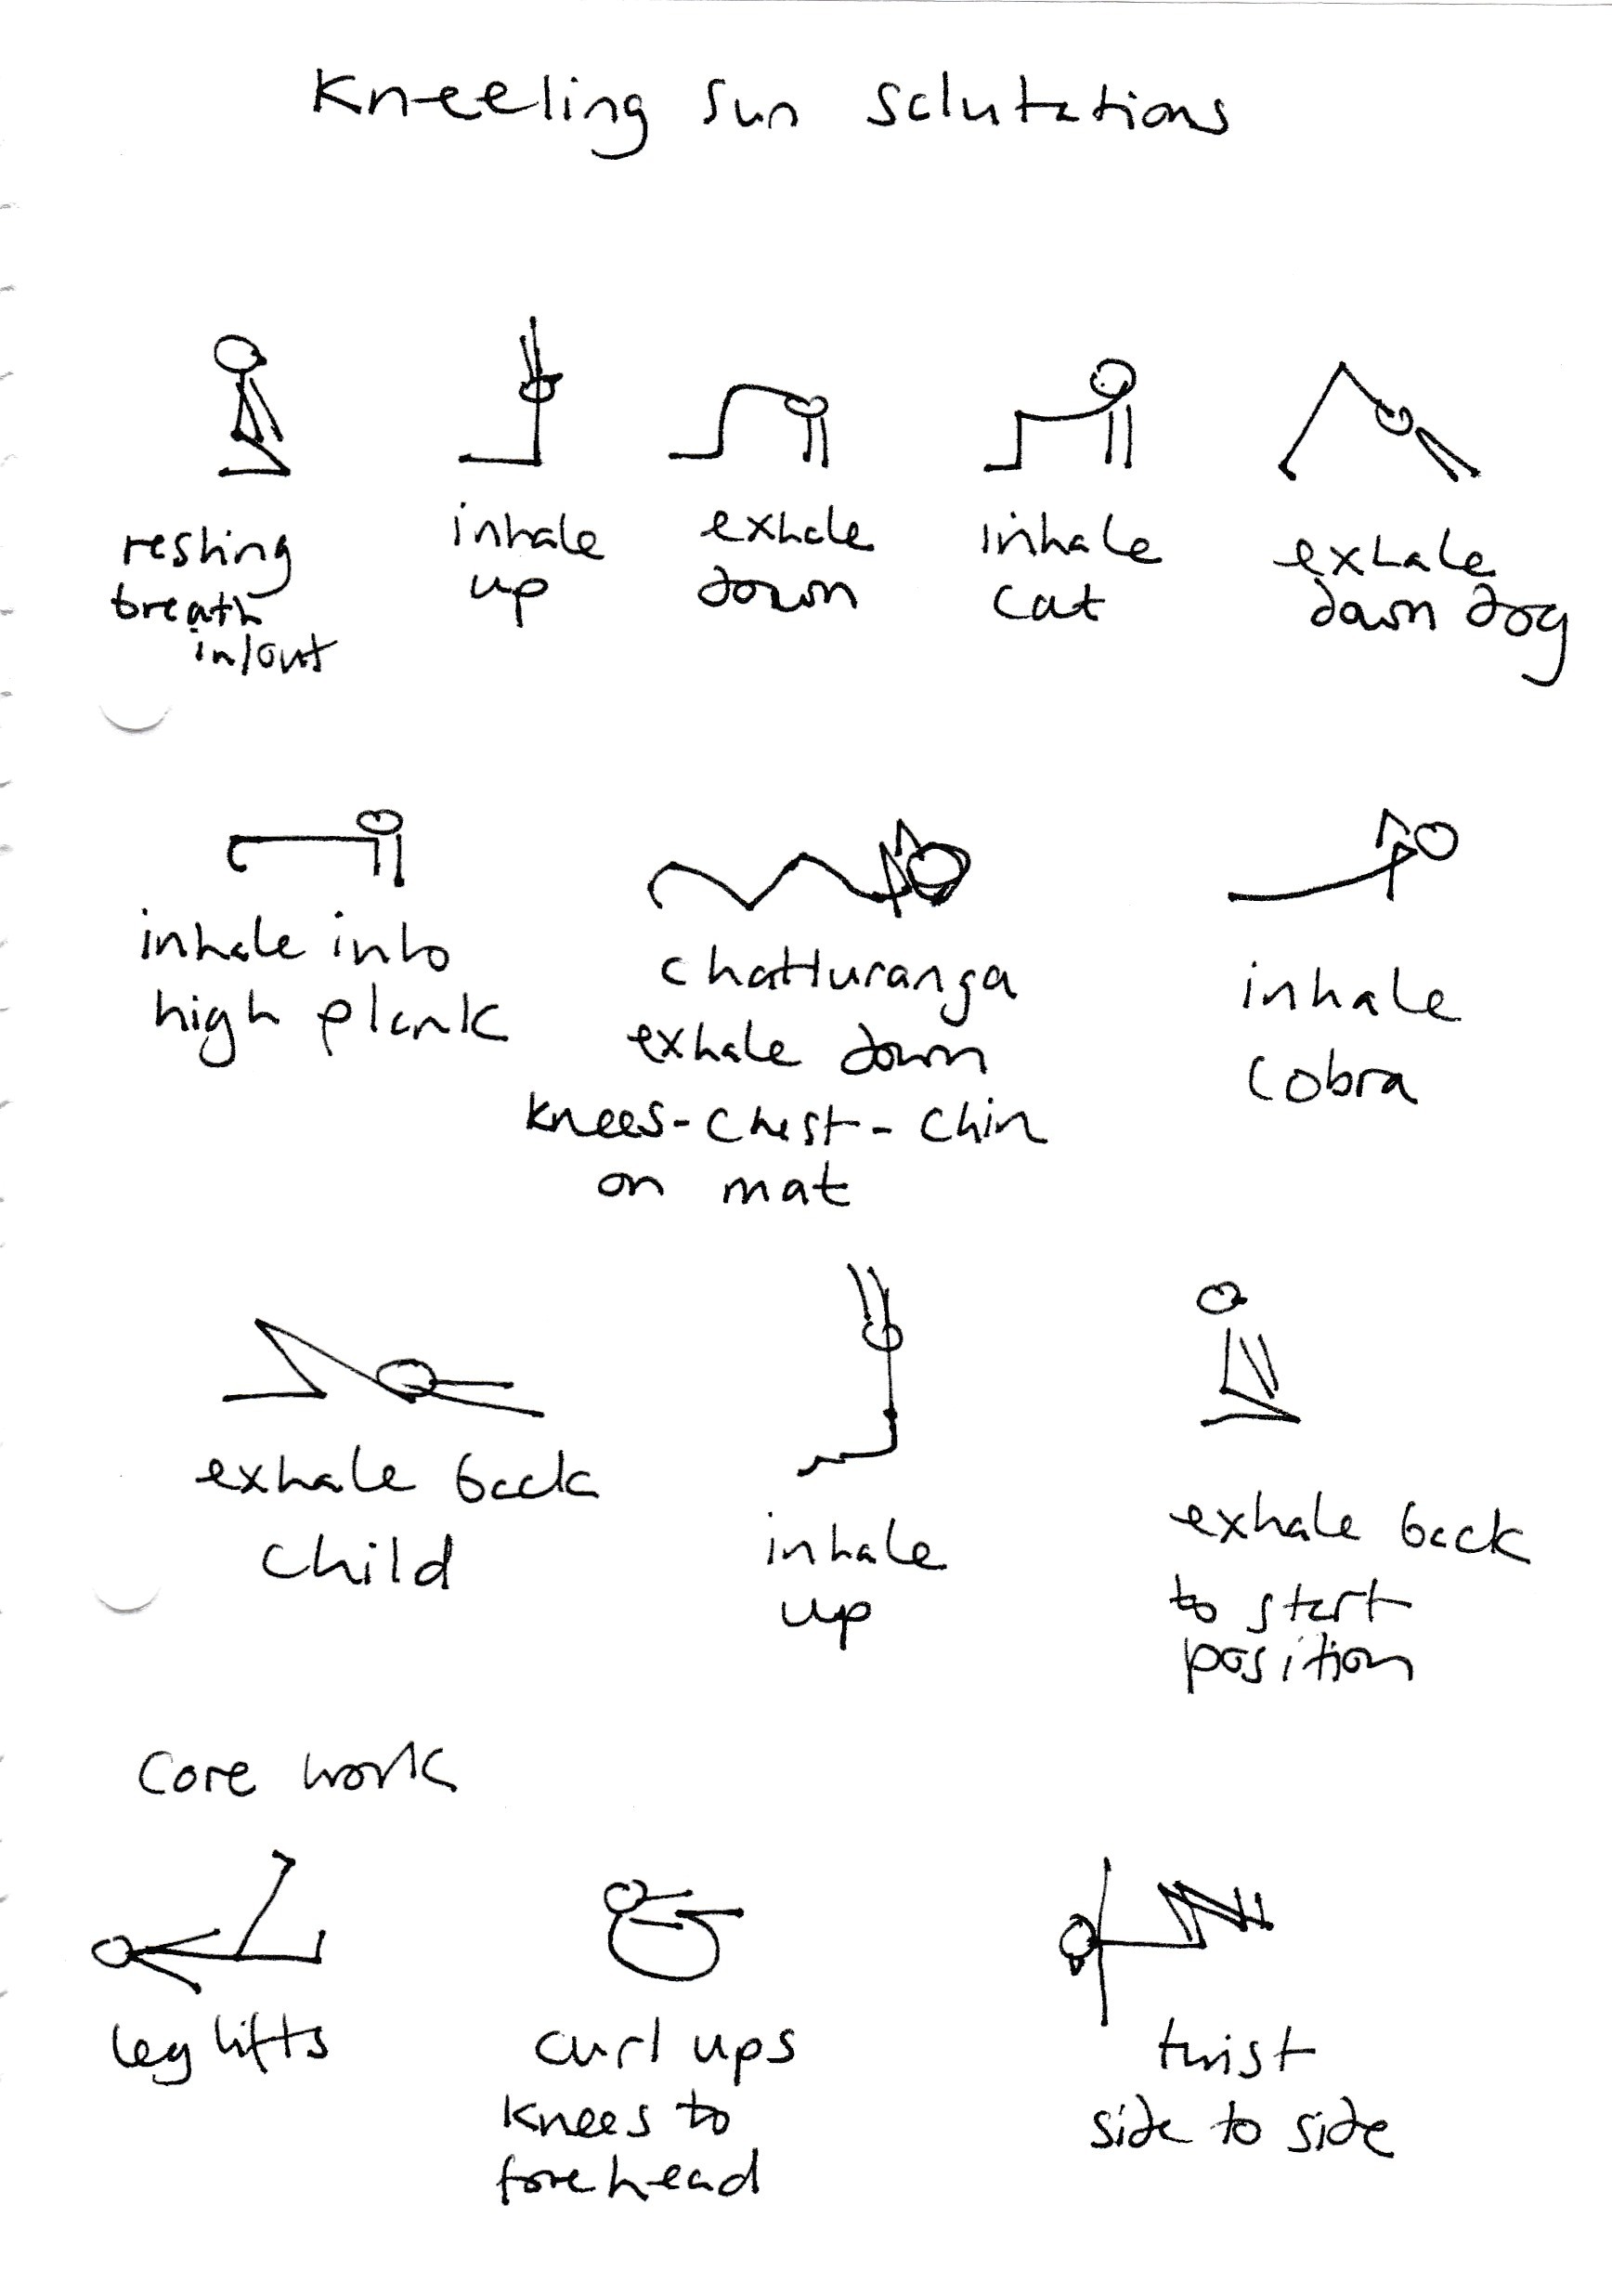 Kneeling Sun Salutations
resting
breath
in/out
inhale
up
exhale
down
inhale
cat
exhale
down dog
inhale into
high plank
chatturanga
exhale down
knees-chest-chin
on mat
inhale
cobra
exhale back
child
inhale
up
exhale back
to start
position
Core work
leg lifts
curl ups
knees to
forehead
twist
side to side